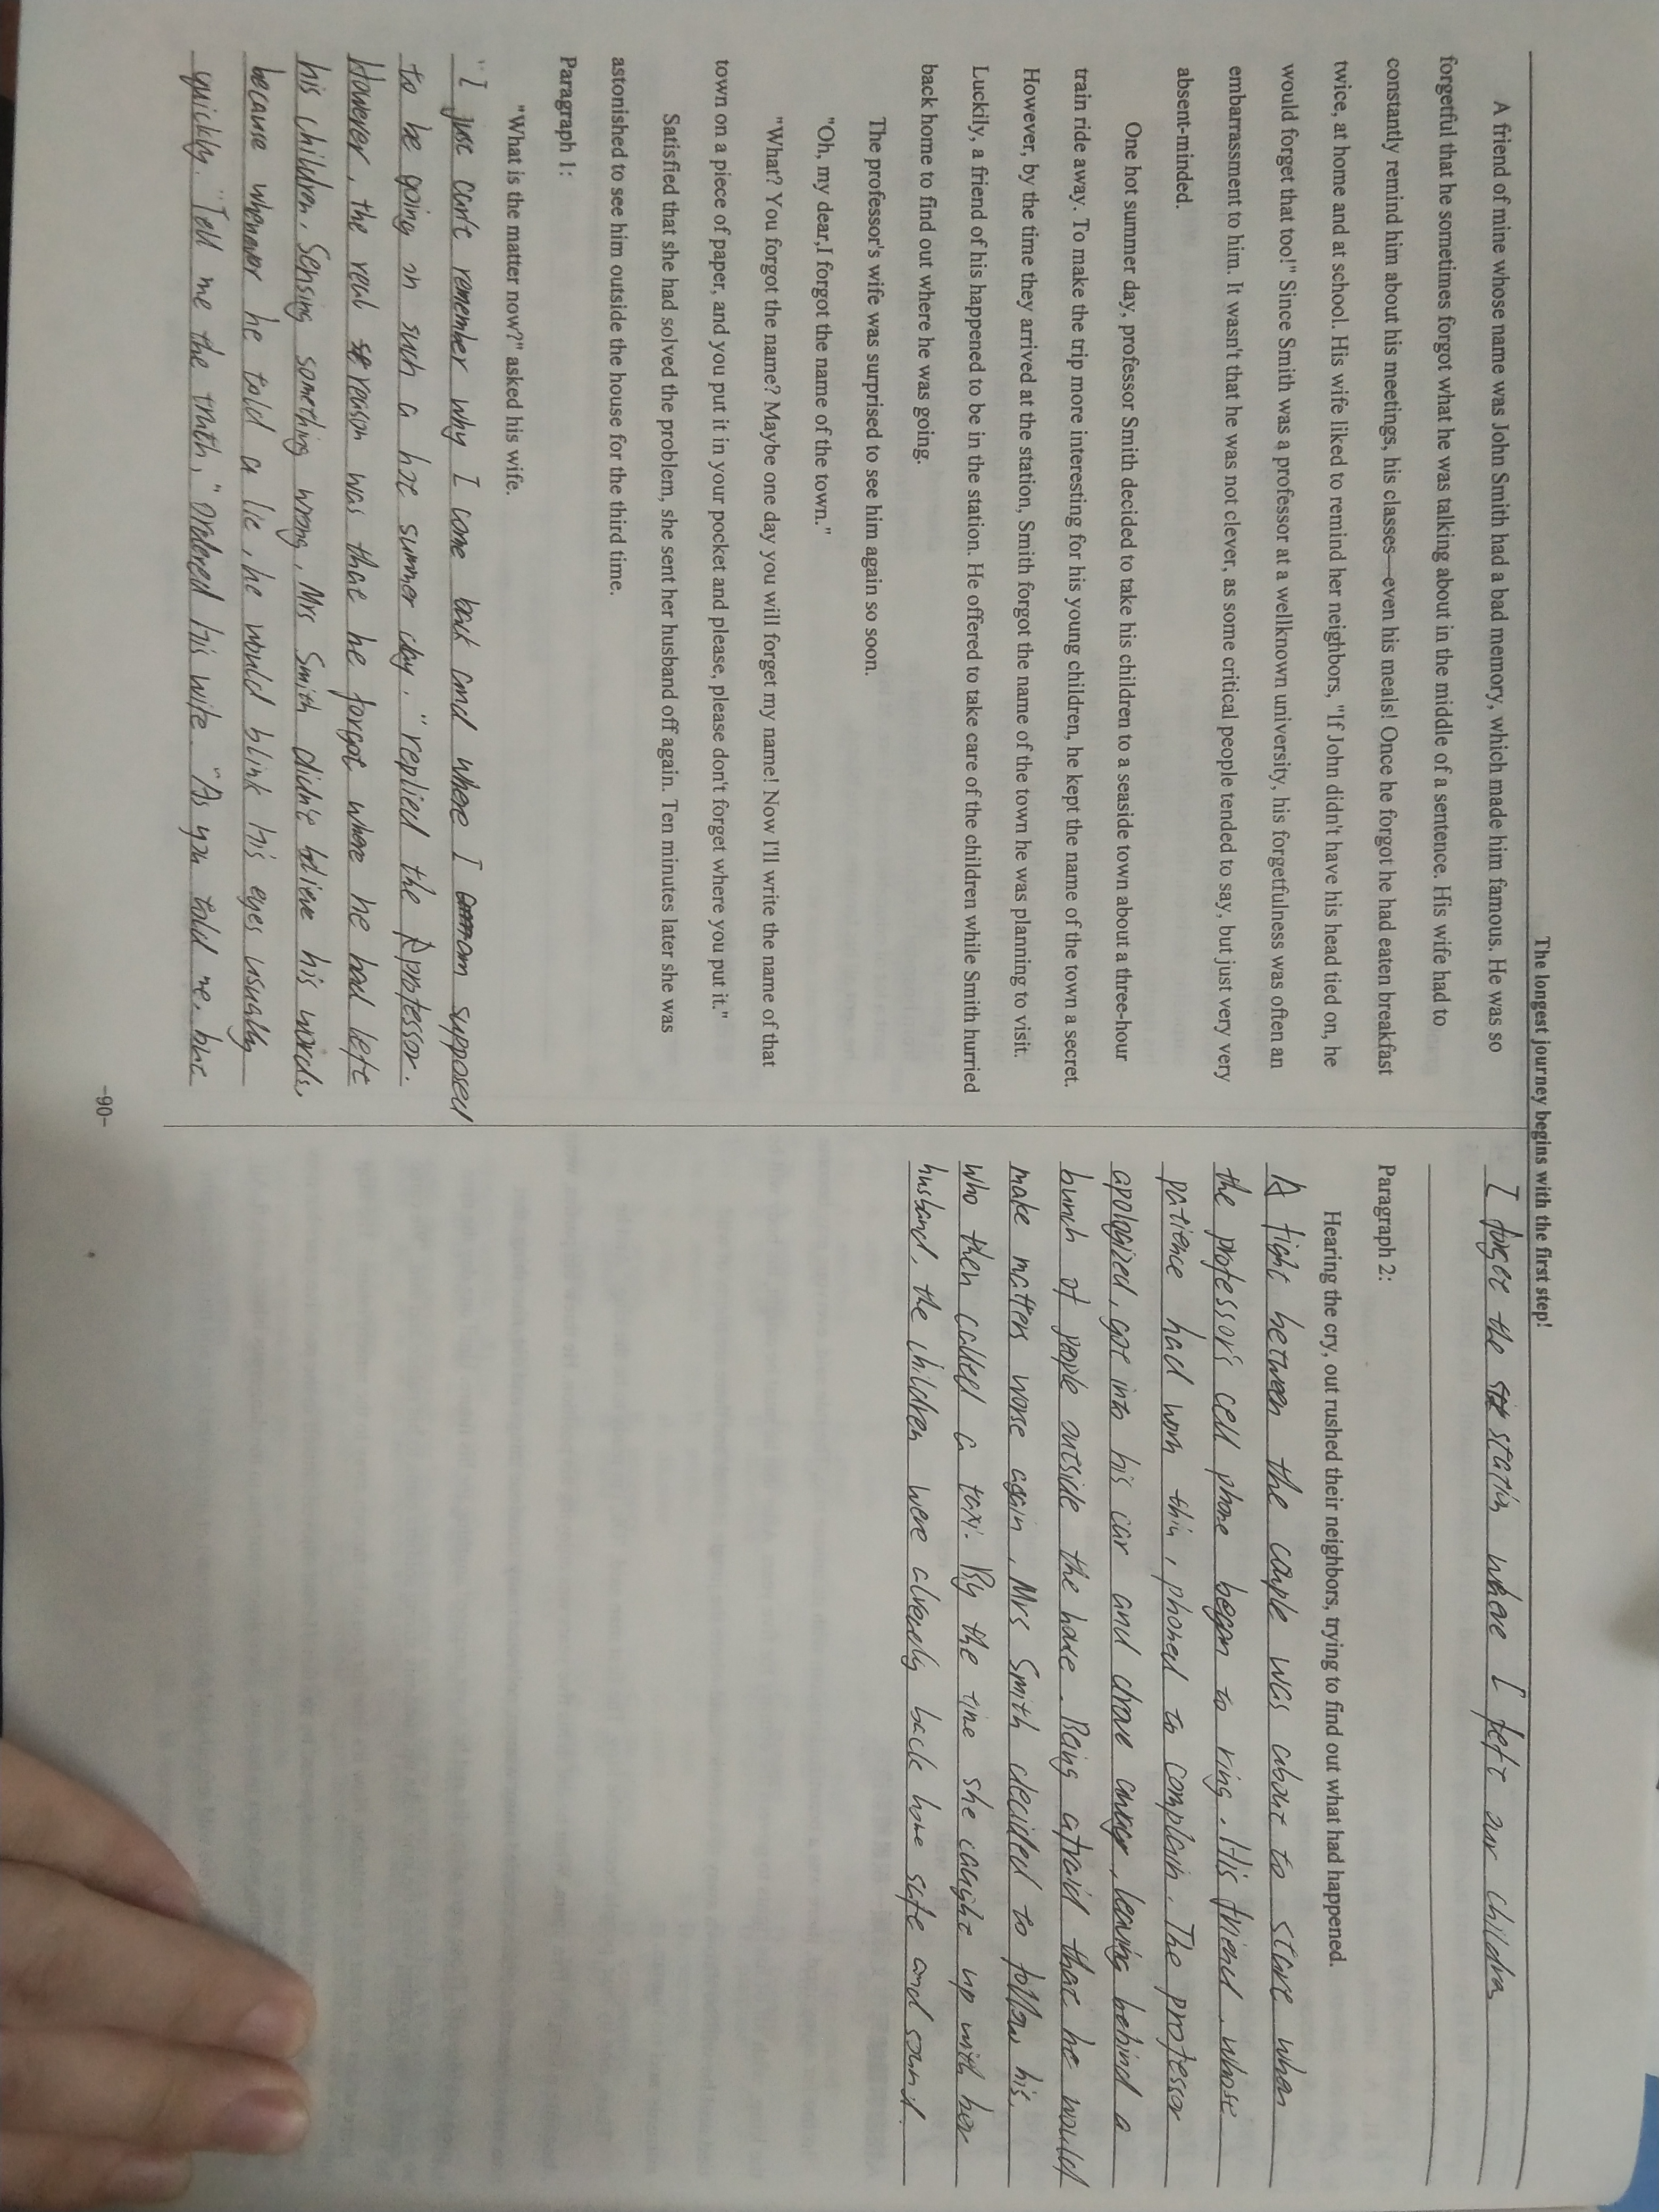 The longest journey begins with the first step!
A friend of mine whose name was John Smith had a bad memory, which made him famous. He was so
forgetful that he sometimes forgot what he was talking about in the middle of a sentence. His wife had to
constantly remind him about his meetings, his classes—even his meals! Once he forgot he had eaten breakfast
twice, at home and at school. His wife liked to remind her neighbors, "If John didn't have his head tied on, he
would forget that too!" Since Smith was a professor at a wellknown university, his forgetfulness was often an
embarrassment to him. It wasn't that he was not clever, as some critical people tended to say, but just very very
absent-minded.
One hot summer day, professor Smith decided to take his children to a seaside town about a three-hour
train ride away. To make the trip more interesting for his young children, he kept the name of the town a secret.
However, by the time they arrived at the station, Smith forgot the name of the town he was planning to visit.
Luckily, a friend of his happened to be in the station. He offered to take care of the children while Smith hurried
back home to find out where he was going.
The professor's wife was surprised to see him again so soon.
"Oh, my dear,I forgot the name of the town."
"What? You forgot the name? Maybe one day you will forget my name! Now I'll write the name of that
town on a piece of paper, and you put it in your pocket and please, please don't forget where you put it."
Satisfied that she had solved the problem, she sent her husband off again. Ten minutes later she was
astonished to see him outside the house for the third time.
Paragraph 1:
"What is the matter now?" asked his wife.
"I just can't remember why I come back and where I am supposed
to be going in such a hot summer day." replied the professor.
However, the real reason was that he forgot where he had left
his children. Sensing something wrong, Mrs Smith didn't believe his words,
because whenever he told a lie, he would blink his eyes usually
quickly. "Tell me the truth," ordered his wife. "As you told me, but
-90-
I forget the station where I left our children
Paragraph 2:
Hearing the cry, out rushed their neighbors, trying to find out what had happened.
A fight between the couple was about to start when
the professor's cell phone began to ring. His friend, whose
patience had worn thin, phoned to complain. The professor
apologized, got into his car and drove away, leaving behind a
bunch of people outside the house. Being afraid that he would
make matters worse again, Mrs Smith decided to follow his.
who then called a taxi. By the time she caught up with her
husband, the children were already back home safe and sound.